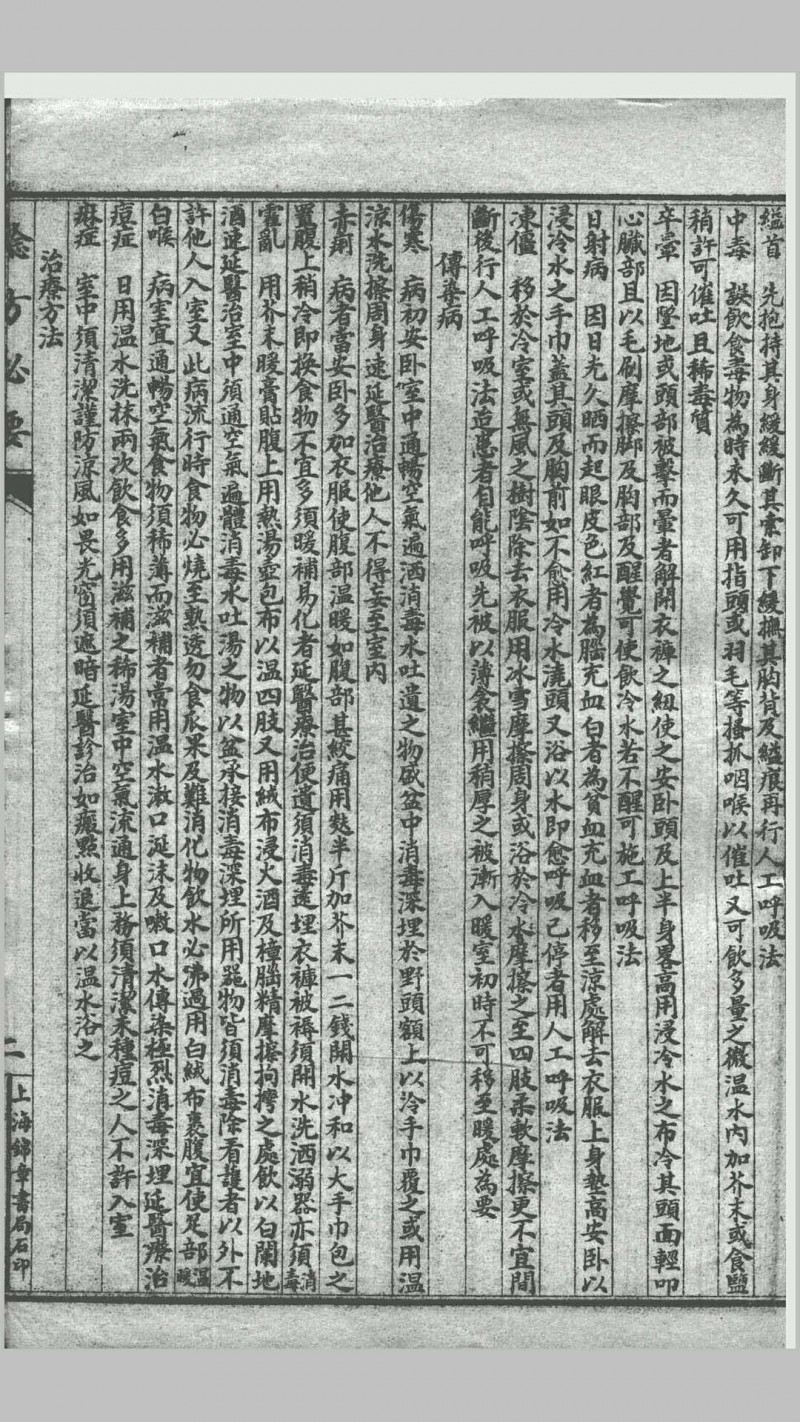 縊首　先抱持其身緩緩斷其索卸下緩撫其胸背及縊痕再行人工呼吸法
中毒　誤飲食毒物為時未久可用指頭或羽毛等搔抓咽喉以催吐又可飲多量之微温水內加芥末或食鹽
稍許可催吐且稀毒質
卒暈　因墜地或頭部被擊而暈者解開衣褲之紐使之安卧頭及上半身畧高用浸冷水之布冷其頭面輕叩
心臟部且以毛刷摩擦脚及胸部及醒覺可使飲冷水若不醒可施工呼吸法
日射病　因日光久晒而起眼皮色紅者為腦充血白者為貧血充血者移至涼處解去衣服上身墊高安卧以
浸冷水之手巾蓋其頭及胸前如不愈用冷水澆頭又浴以水即愈呼吸已停者用人工呼吸法
凍僵　移於冷室或無風之樹陰除去衣服用冰雪摩擦周身或浴於冷水摩擦之至四肢柔軟摩擦更不宜間
斷後行人工呼吸法迨患者自能呼吸先被以薄衾繼用稍厚之被漸入暖室初時不可移至暖處為要
傳染病
傷寒　病初安卧室中通暢空氣遍洒消毒水吐遺之物盛盆中消毒深埋於野頭額上以冷手巾覆之或用温
涼水洗擦周身速延醫治療他人不得妄至室內
赤痢　病者當安卧多加衣服使腹部温暖如腹部甚絞痛用麩半斤加芥末一二錢開水冲和以大手巾包之
置腹上稍冷即換食物不宜多須暖補易化者延醫療治便遺須消毒遠埋衣褲被褥須開水洗洒溺器亦須消毒
霍亂　用芥末暖膏貼腹上用熱湯壺包布以温四肢又用絨布浸火酒及樟腦精摩擦拘攣之處飲以白蘭地
酒速延醫治室中須通空氣遍體消毒水吐湯之物以盆承接消毒深埋所用器物皆須消毒除看護者以外不
許他人入室又此病流行時食物必燒至熟透勿食瓜果及難消化物飲水必沸過用白絨布裹腹宜使足部温暖
白喉　病室宜通暢空氣食物須稀薄而滋補者常用温水漱口涎沫及嗽口水傳染極烈消毒深埋延醫療治
痘症　日用温水洗抹兩次飲食多用滋補之稀湯室中空氣流通身上務須清潔未種痘之人不許入室
痳症　室中須清潔謹防涼風如畏光窗須遮暗延醫診治如癍點收退當以温水浴之
治療方法
驗方必要
二
上海錦章書局石印